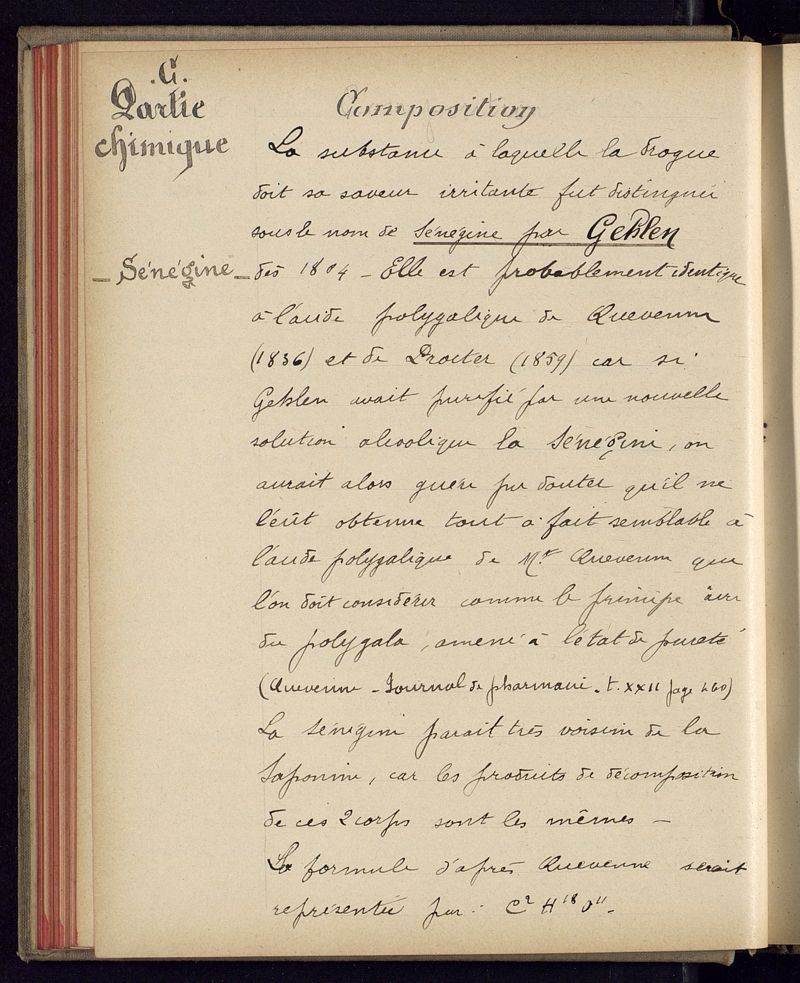 .G.
Partie
chimique
Composition
La substance à laquelle la drogue
doit sa saveur irritante fut distinguée
sous le nom de Sénégine par Gehlen
_ Sénégine _
dès 1804 _ Elle est probablement identique
à l'acide polygalique de Quevenne
(1836) et de Procter (1859) car si
Gehlen avait purifié par une nouvelle
solution alcoolique la Sénégine, on
aurait alors guère pu douter qu'il ne
l'eût obtenue tout à fait semblable à
l'acide polygalique de Mr Quevenne que
l'on doit considérer comme le principe âcre
du polygala, amené à l'état de pureté
(Quevenne - Journal de pharmacie. t. XXII page 460)
La Sénégine parait très voisine de la
Saponine, car les produits de décomposition
de ces 2 corps sont les mêmes _
La formule d'après Quevenne serait
représentée par : C² H¹⁸ O¹¹.